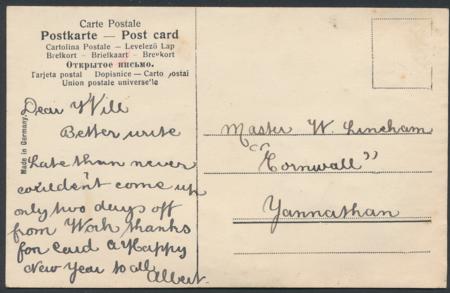 Carte Postale
Postkarte — Post card
Cartolina Postale – Levelező Lap
Brefkort – Briefkaart – Brevkort
Открытое письмо.
Tarjeta postal Dopisnice – Carto postai
Union postale universelle
Made in Germany.
Dear Will
Better write
Late than never
couldn't come up
only two days off
from Work thanks
for card a Happy
New Year to all
Albert.
Master W. Lineham
"Cornwall"
Yannathan